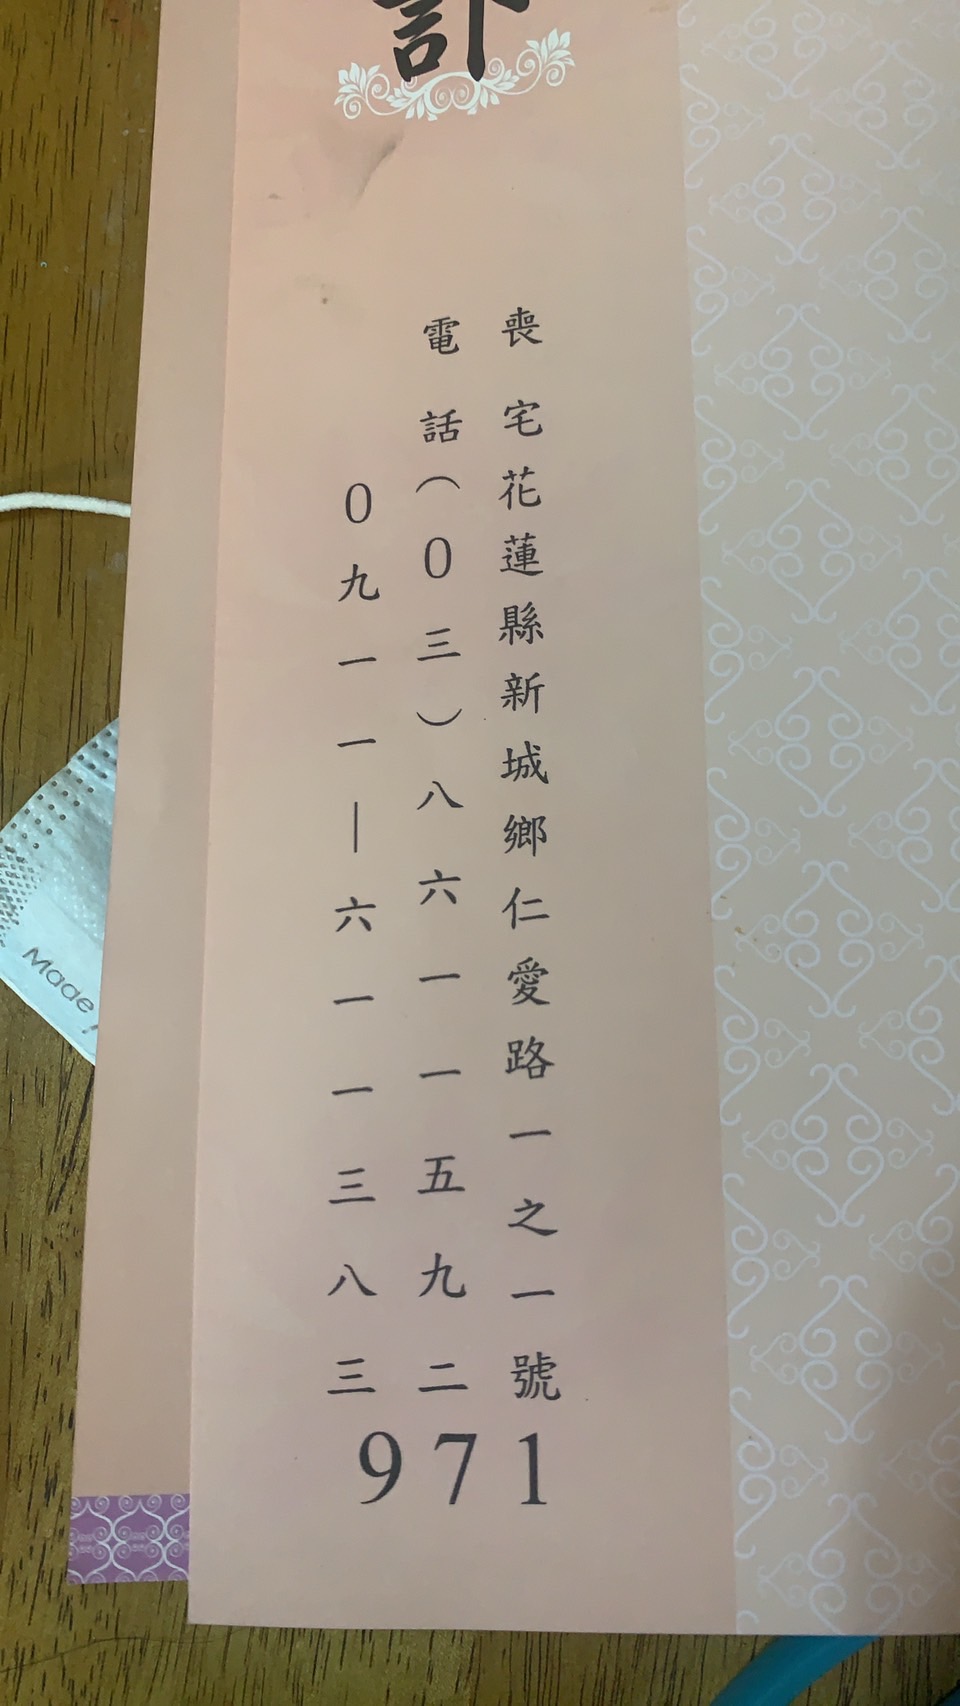 訃
喪宅花蓮縣新城鄉仁愛路一之一號
電話(0三)八六一一五九二
0九一一—六一一三八三
971
Made